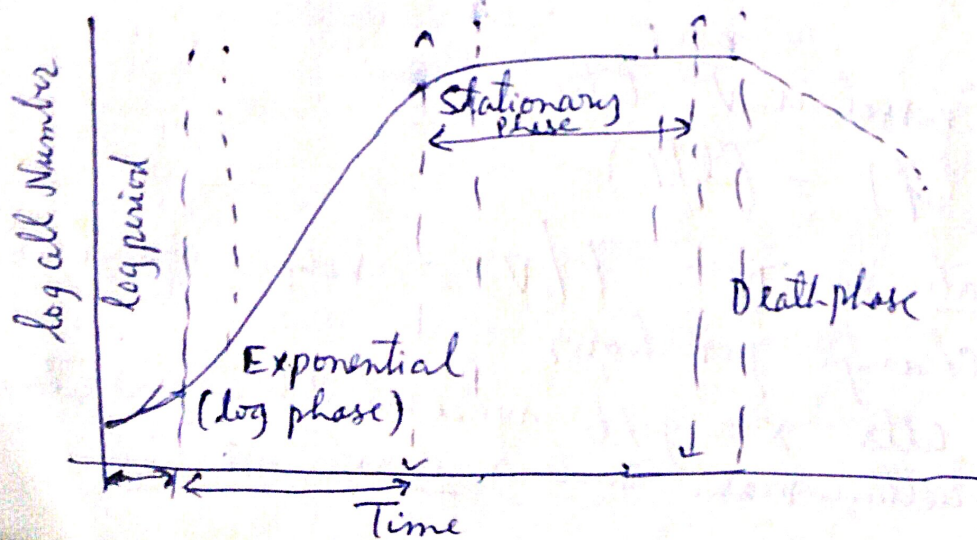 log Cell Number
log period
Stationary
phase
Death phase
Exponential
(log phase)
Time